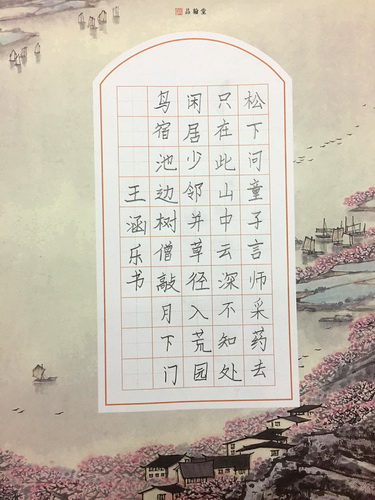 品翰堂
松下问童子言师采药去
只在此山中云深不知处
闲居少邻并草径入荒园
鸟宿池边树僧敲月下门
王涵乐书